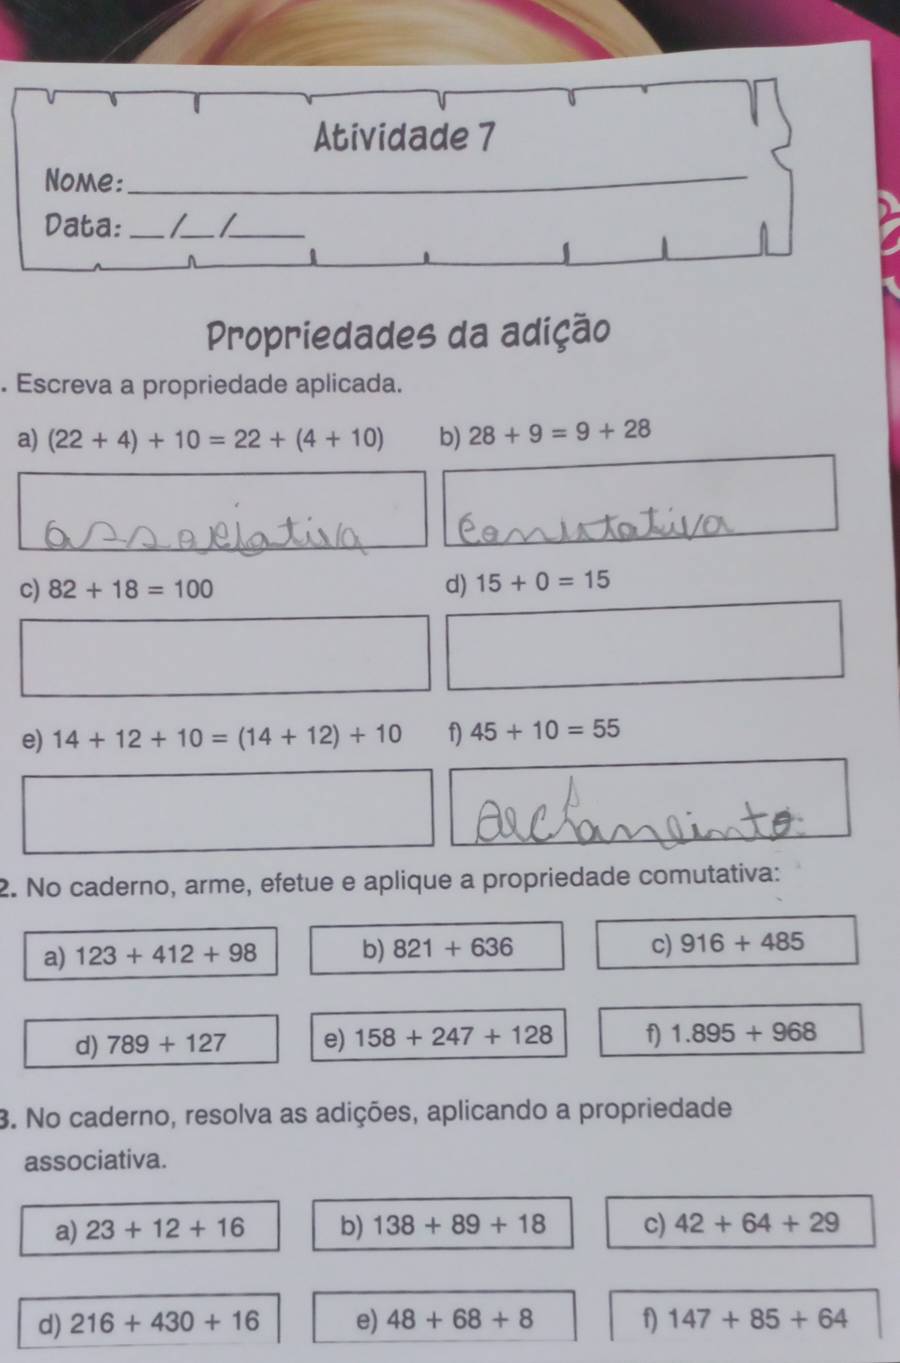 Atividade 7
Nome:
Data: __/__/____
Propriedades da adição
. Escreva a propriedade aplicada.
a) (22 + 4) + 10 = 22 + (4 + 10) b) 28 + 9 = 9 + 28
c) 82 + 18 = 100 d) 15 + 0 = 15
e) 14 + 12 + 10 = (14 + 12) + 10 f) 45 + 10 = 55
2. No caderno, arme, efetue e aplique a propriedade comutativa:
a) 123 + 412 + 98 b) 821 + 636 c) 916 + 485
d) 789 + 127 e) 158 + 247 + 128 f) 1.895 + 968
3. No caderno, resolva as adições, aplicando a propriedade
associativa.
a) 23 + 12 + 16 b) 138 + 89 + 18 c) 42 + 64 + 29
d) 216 + 430 + 16 e) 48 + 68 + 8 f) 147 + 85 + 64